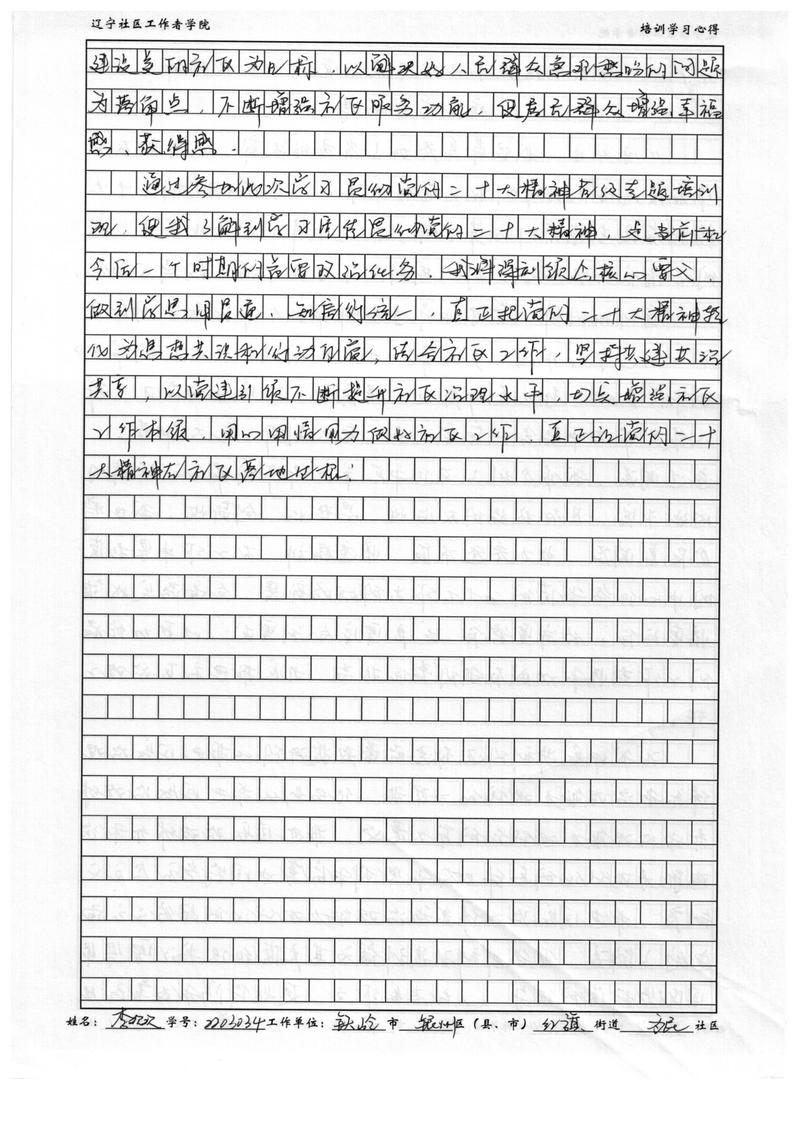 辽宁社区工作者学院 培训学习心得
建设美好社区为目标,以解决好人民群众急难愁盼的问题
为落脚点,不断增强社区服务功能,使居民群众增强幸福
感、获得感.
通过参加此次学习贯彻党的二十大精神网络专题培训
班,使我了解到学习宣传贯彻党的二十大精神,是当前和
今后一个时期的首要政治任务,我将深刻领会核心要义,
做到学思用贯通、知信行统一,真正把党的二十大精神转
化为思想共识和行动自觉,结合社区工作,坚持共建共治
共享,以党建引领不断提升社区治理水平,切实增强社区
工作本领,用心用情用力做好社区工作,真正让党的二十
大精神在社区落地生根!
姓名: 李 学号:2203034 工作单位:铁岭 市 银州 区(县、市) 红旗 街道 社区